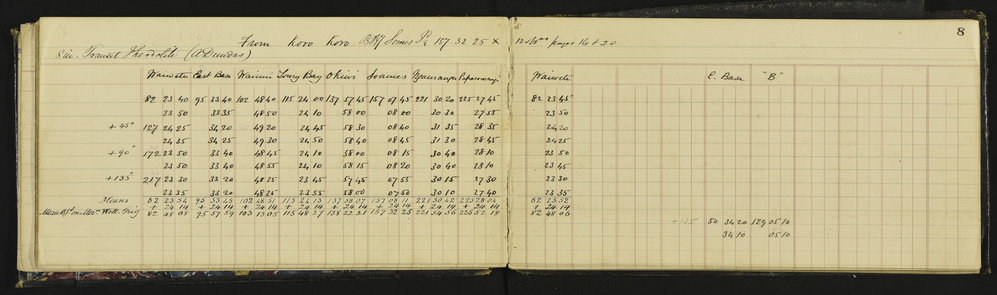 8
From Koro Koro Somes 157 32 25 x
8 in. Transit Theodolite (A Dundas)
Wainui Lowry Bay Okiwi Somes E. Base "B"
82 23 40 95 33 40 102 48 40 115 24 00 137 57 45 157 07 45 221 30 20 225 27 45 82 23 45
23 50 33 35 48 50 24 10 58 00 08 00 30 30 27 55 23 50
+ 45° 127 24 25 34 20 49 20 24 45 58 30 08 40 31 35 28 35 24 20
24 35 34 25 49 30 24 50 58 40 08 45 31 30 28 45 24 25
+ 90° 172 23 50 33 40 48 45 24 10 58 00 08 15 30 40 28 10 23 50
23 50 33 40 48 55 24 10 58 15 08 20 30 40 28 10 23 45
+ 135° 217 23 30 33 20 48 25 23 45 57 45 07 55 30 15 27 30 23 30
23 35 33 20 48 25 23 55 58 00 07 50 30 10 27 40 23 35
Means 82 23 54 95 33 45 102 48 51 115 24 13 137 58 07 157 08 11 221 30 42 225 28 04 82 23 52
+ 24 14 + 24 14 + 24 14 + 24 14 + 24 14 + 24 14 + 24 14 + 24 14 + 24 14
82 48 08 95 57 59 103 13 05 115 48 27 138 22 21 157 32 25 221 54 56 225 52 18 82 48 06
+ 135 50 34 20 129 05 10
34 10 05 10